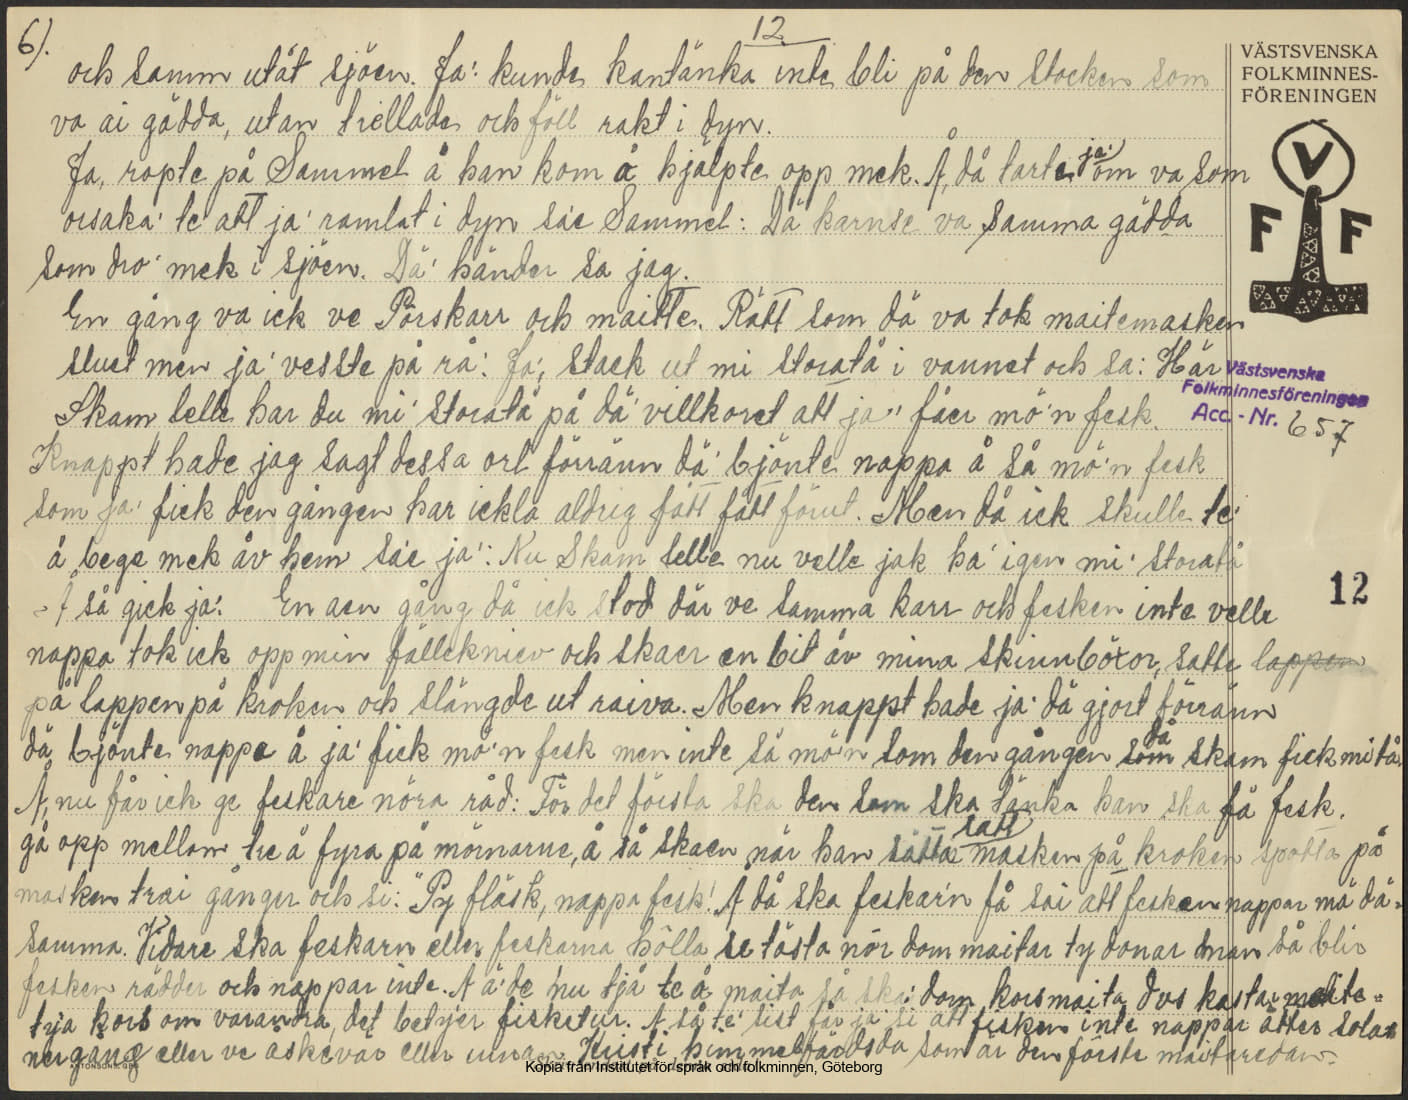 6).
12
och samm utåt sjöen. Ja' kunde kantänka inte bli på den stocken som
va ai gädda, utan triellade och föll rakt i dyn.
Ja, ropte på Sammel å han kom å hjälpte opp mek. Å, då tarte ja' om va som
orsaka' te att ja' ramlat i dyn säe Sammel: Dä kanse va samma gädda
som dro' mek i sjöen. Dä' händer sa jag.
En gång va ick ve Pörskarr och maitte. Rätt som dä va tok maitemasken
sluet men ja' vesste på rå'. Ja', stack ut mi storatå i vannet och sa: Här
Skam lelle har du mi' storatå på dä' villkoret att ja' fåer mö'n fesk.
Knappt hade jag sagt dessa ort förränn dä' bjönte nappa å så mö'n fesk
som ja' fick den gången har ickla aldrig fått fått förut. Men då ick skulle te'
å bege mek åv hem säe ja': Nu Skam lelle nu velle jak ha' igen mi' storatå
- Å så gick ja'. En aen gång då ick stod där ve samma karr och fesken inte velle
nappa tok ick opp min fällekniev och skaer en bit åv mina skinnböxor, satte lappen
på lappen på kroken och slängde ut raiva. Men knappt hade ja' dä gjort förränn
dä bjönte nappa å ja' fick mö'n fesk men inte så mö'n som den gången som då skam fick mi tå.
Å, nu får ick ge feskare nöra råd: För det första ska den som ska tänka han ska få fesk.
gå opp mellom tre å fyra på mörnarne, å så skaen när han sätta satt masken på kroken spotta på
masken trai gånger och si: "Py fläsk, nappa fesk! Å då ska feskar'n få sai att fesken nappar mä dä-
samma. Vidare ska feskarn eller feskarna hölla se tösta nör dom maitar ty donar man så blir
fesken rädder och nappar inte. Å ä' de nu tjå te å maita så ska' dom korsmaita dvs kastar maite-
tyja kors om varandra, det betyer fisketur. Å så te' sist får ja' si att fisken inte nappar ätter solar
nergång eller ve åskevär eller innan Kristi himmelsfärdsda som är den förste maitaredan-
VÄSTSVENSKA
FOLKMINNES-
FÖRENINGEN
V
F F
Västsvenska
Folkminnesföreningen
Acc.-Nr. 657
12
Kopia från Institutet för språk och folkminnen, Göteborg